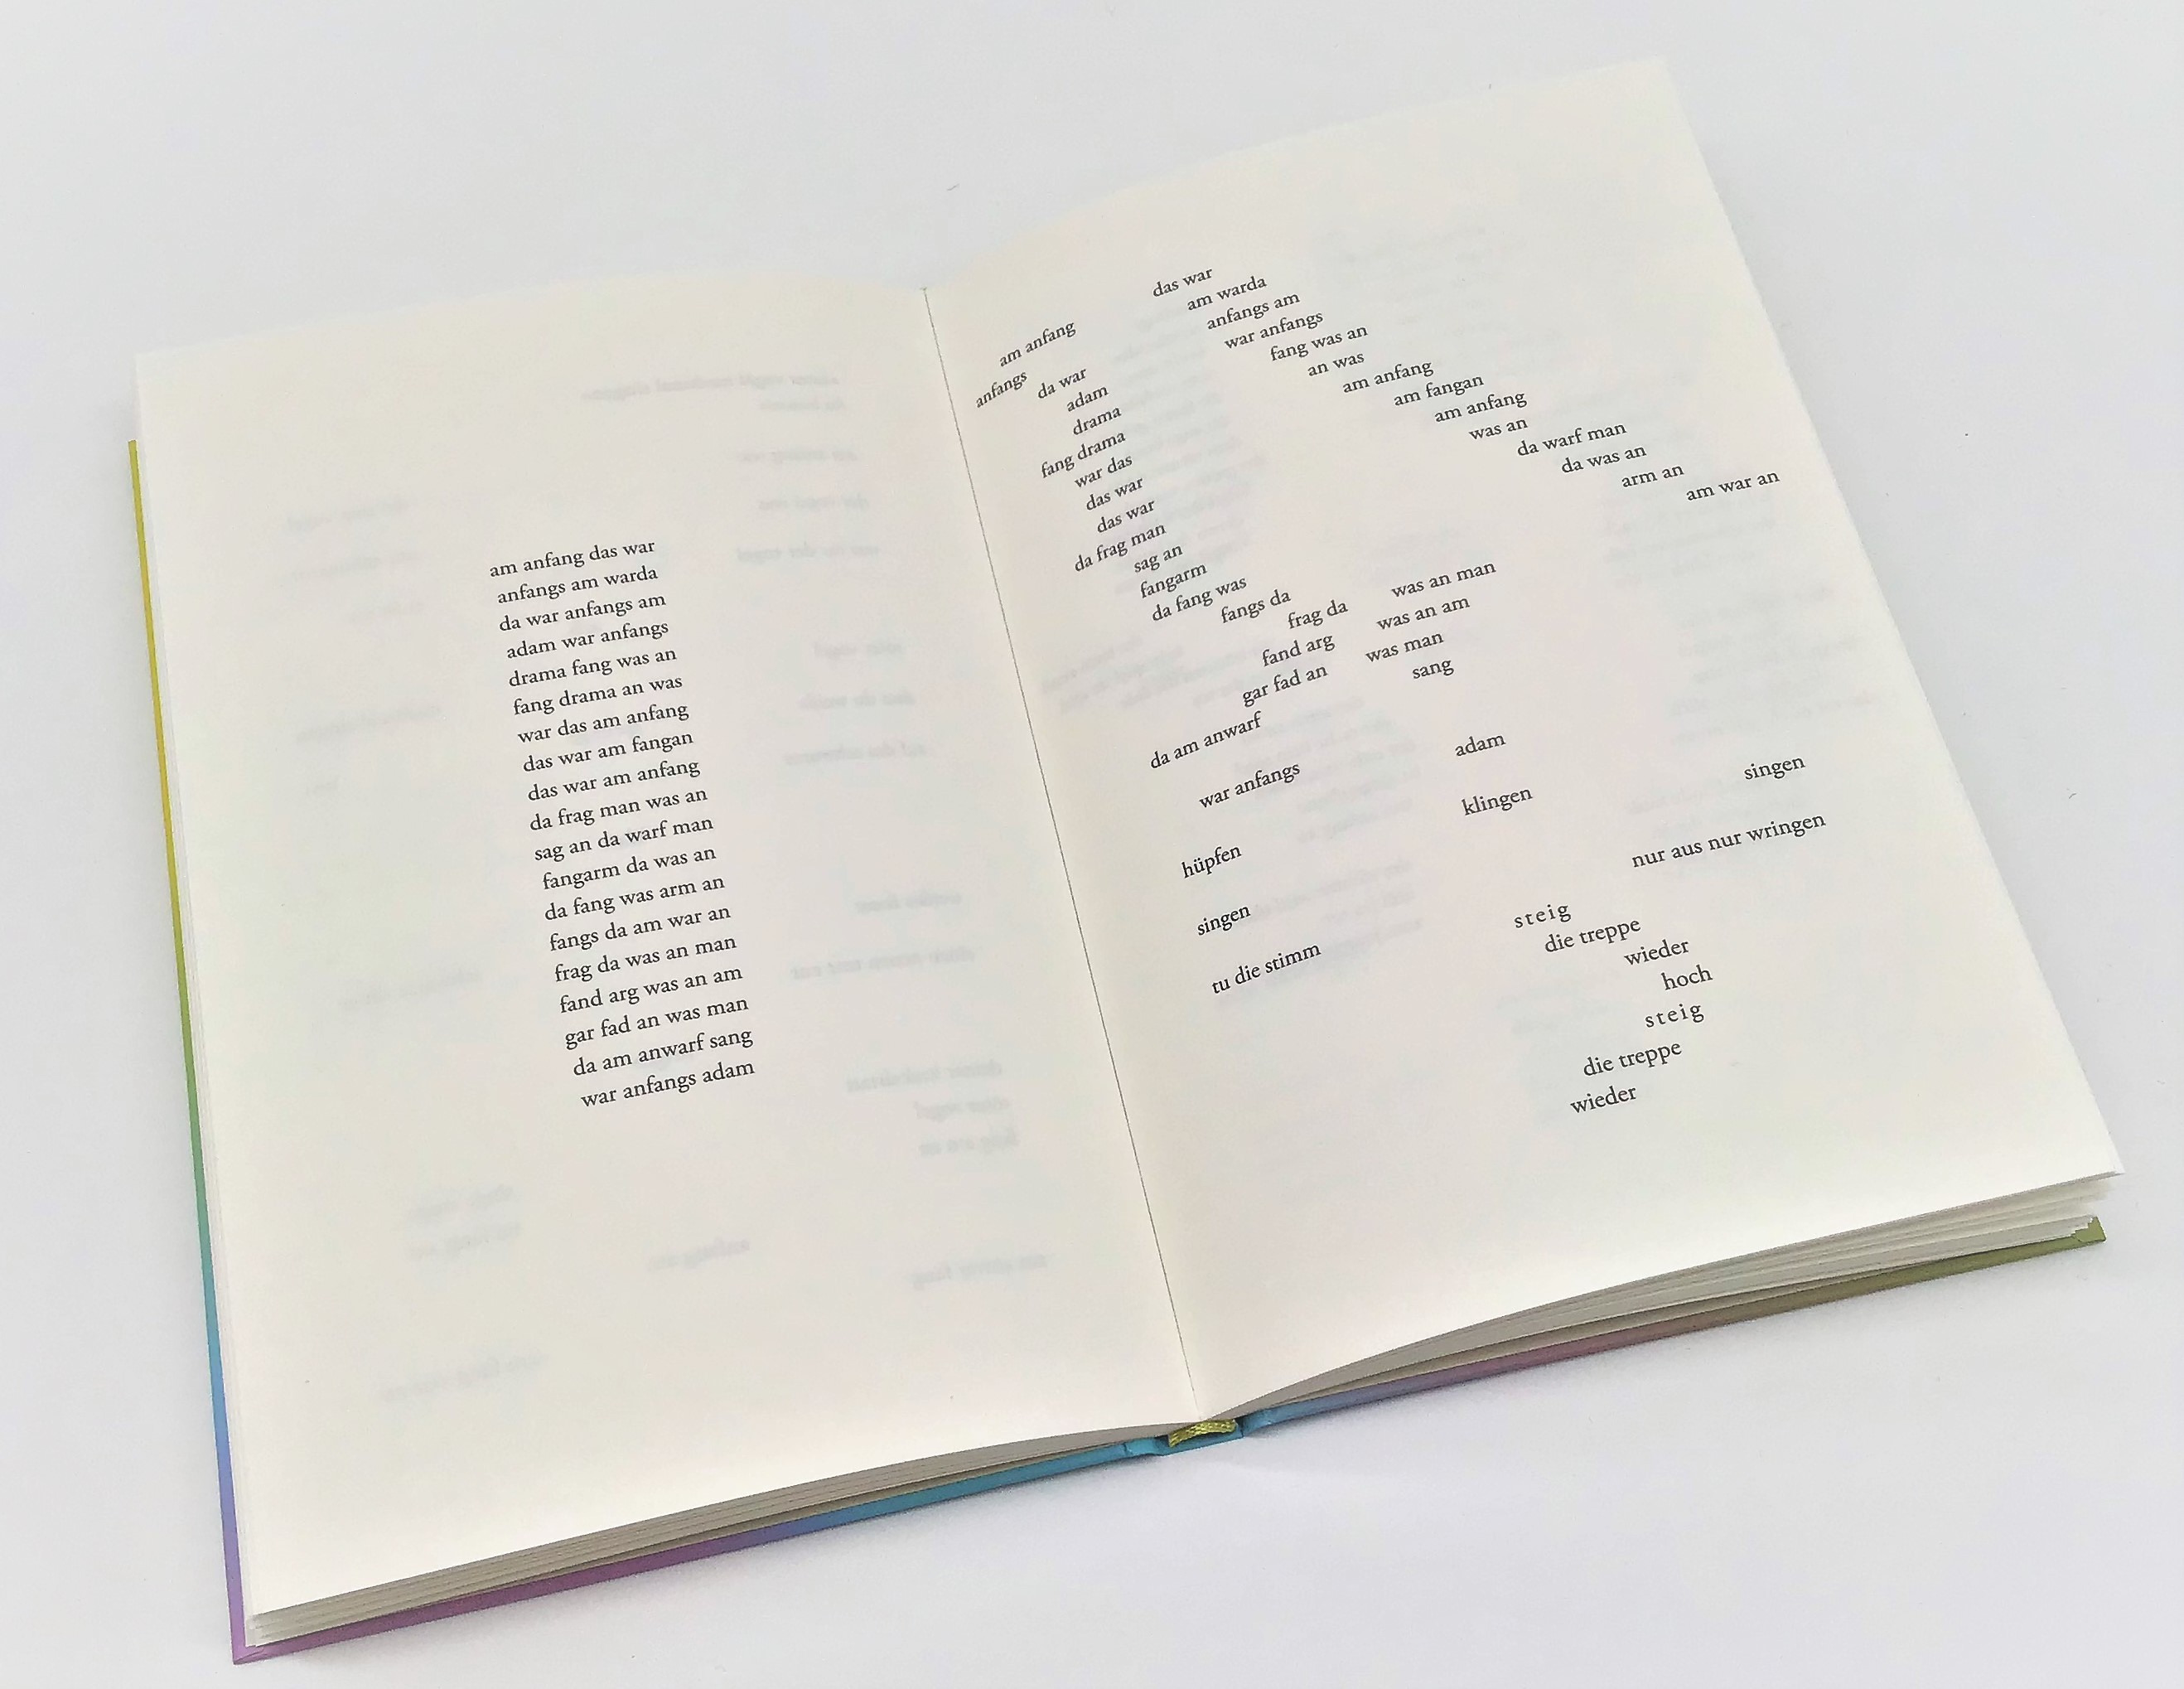 am anfang das war
anfangs am warda
da war anfangs am
adam war anfangs
drama fang was an
fang drama an was
war das am anfang
das war am fangan
das war am anfang
da frag man was an
sag an da warf man
fangarm da was an
da fang was arm an
fangs da am war an
frag da was an man
fand arg was an am
gar fad an was man
da am anwarf sang
war anfangs adam
am anfang
anfangs
da war
adam
drama
fang drama
war das
das war
das war
da frag man
sag an
fangarm
da fang was
fangs da
frag da
fand arg
gar fad an
da am anwarf
war anfangs
das war
am warda
anfangs am
war anfangs
fang was an
an was
am anfang
am fangan
am anfang
was an
da warf man
da was an
arm an
am war an
was an man
was an am
was man
sang
adam
klingen
singen
nur aus nur wringen
hüpfen
singen
tu die stimm
steig
die treppe
wieder
hoch
steig
die treppe
wieder